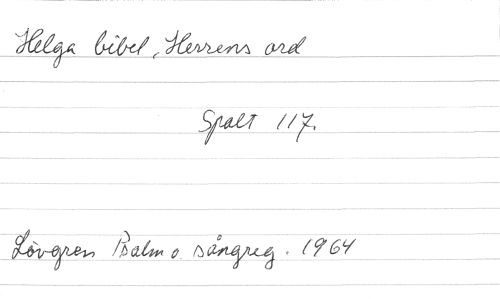 Helga bibel, Herrens ord
Spalt 117.
Lövgren Psalm o. sångreg. 1964